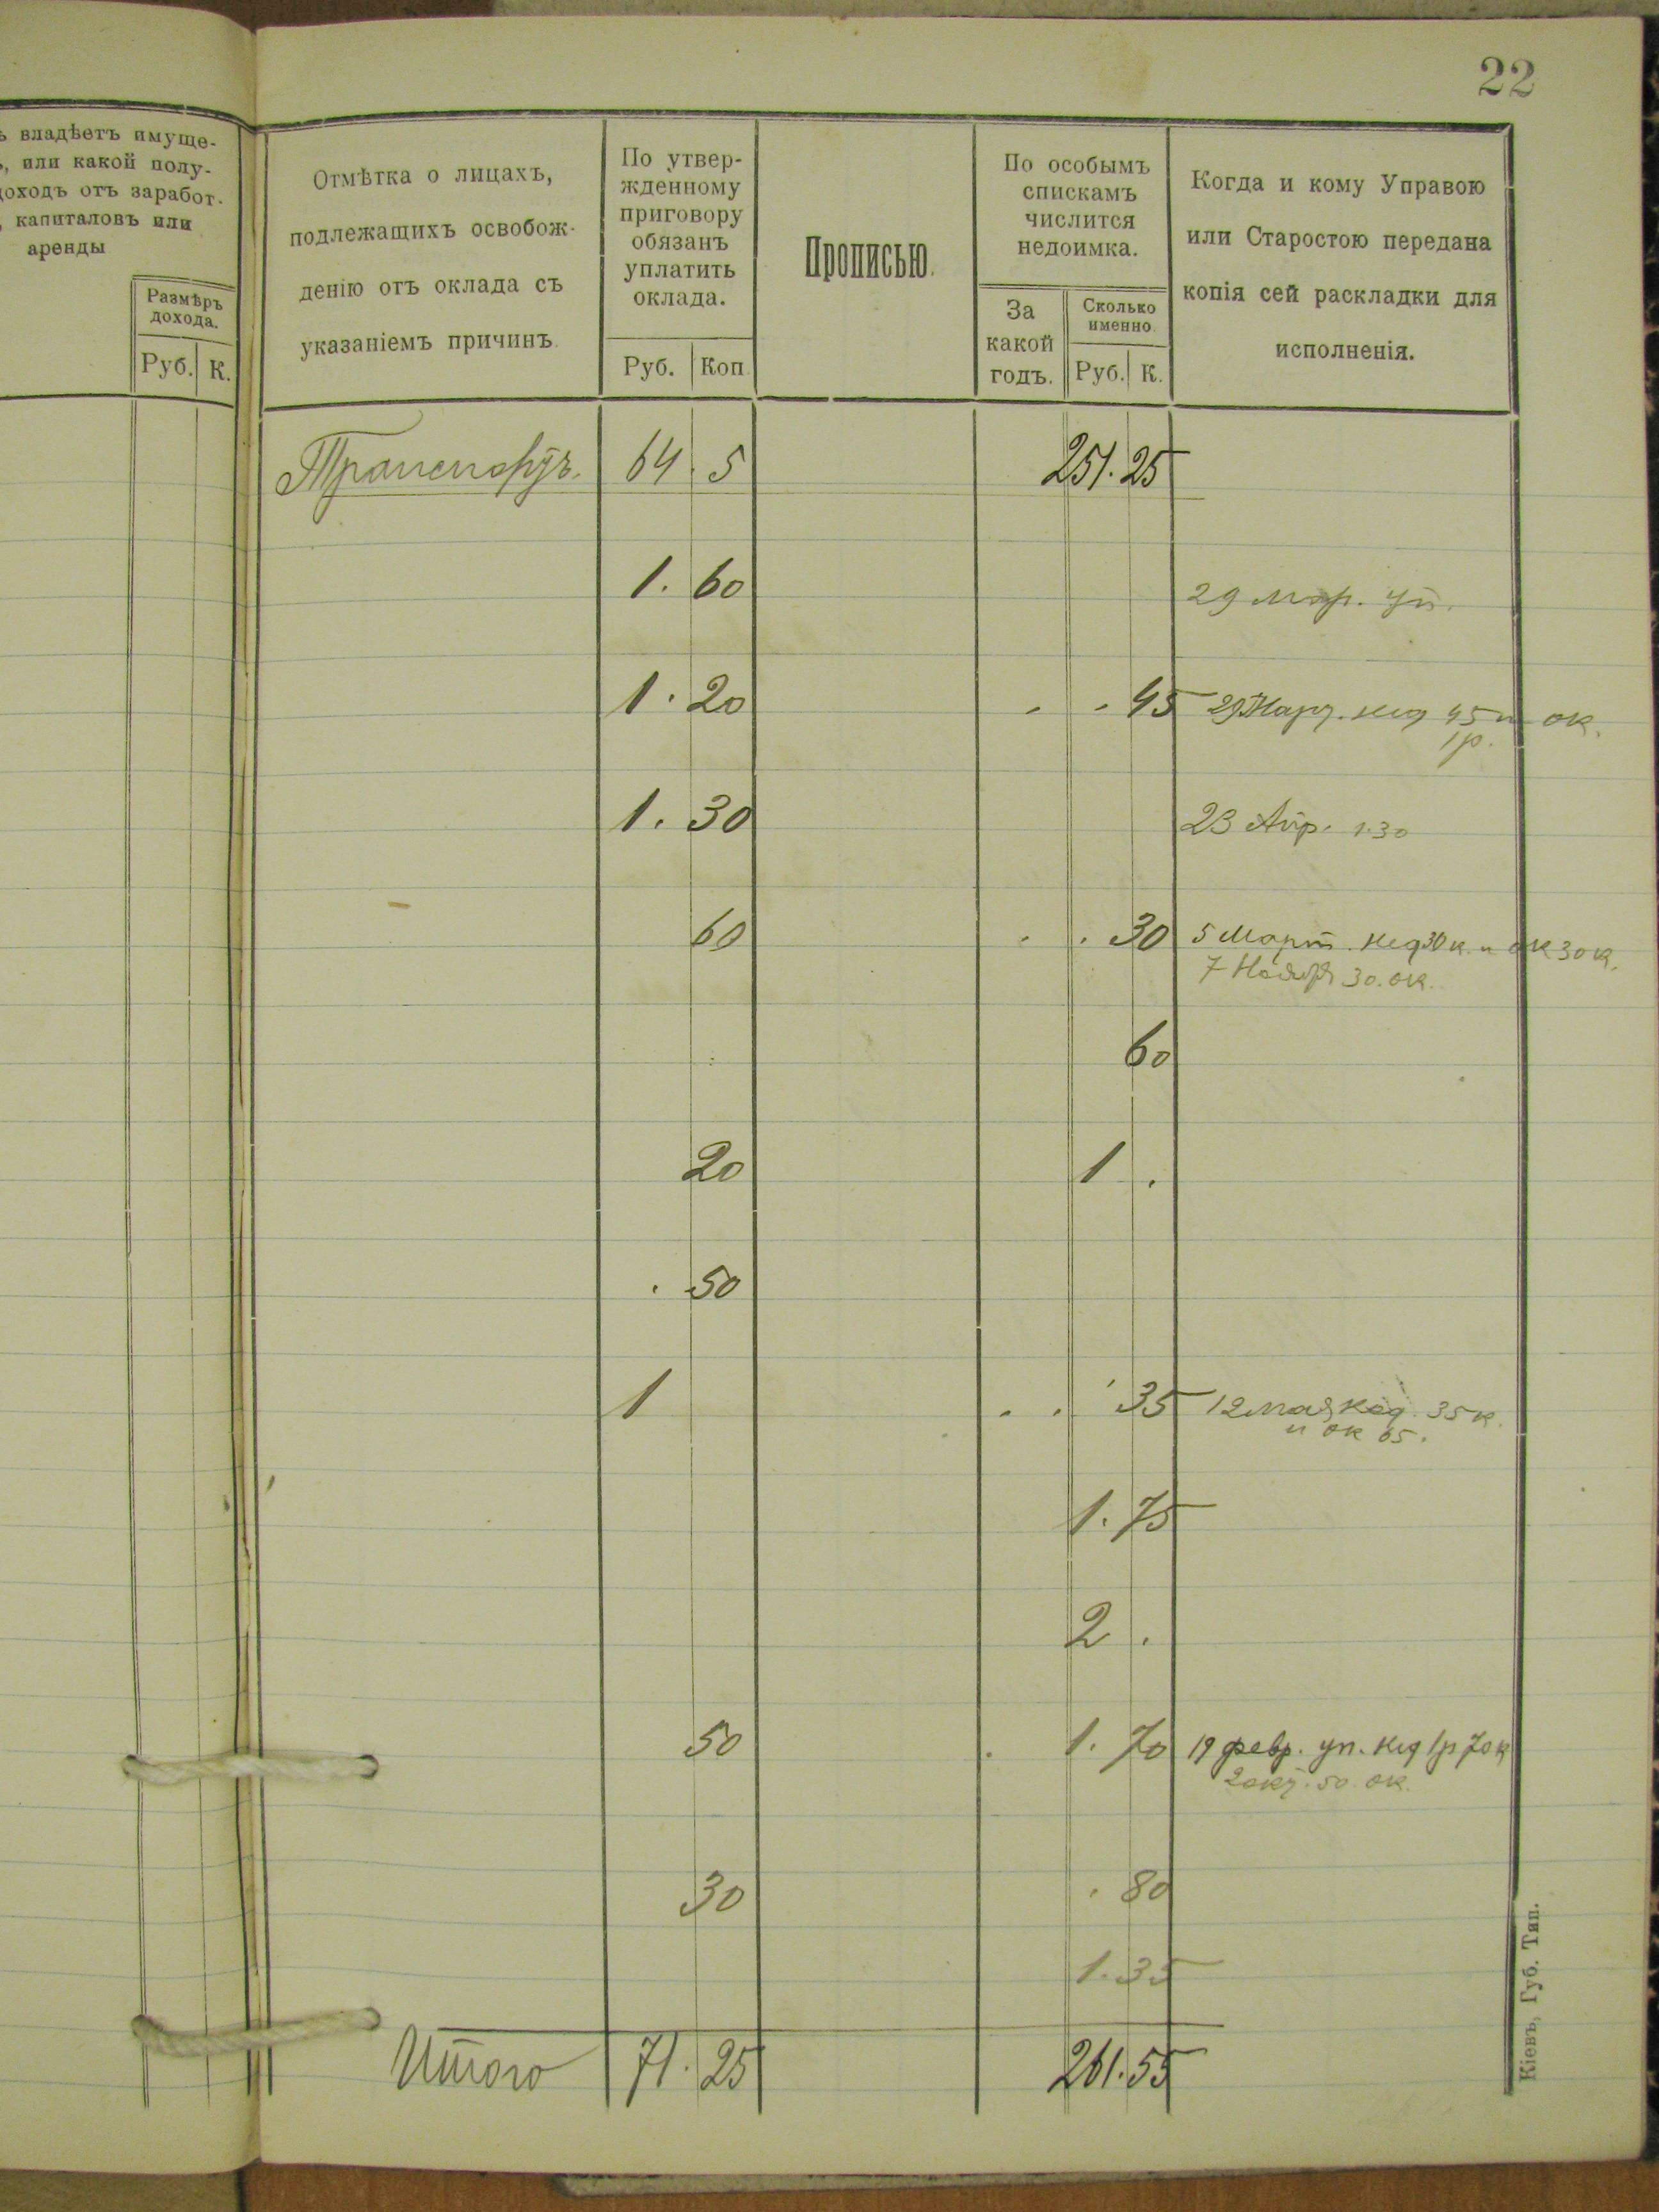 22
ъ владѣетъ имуще-
ъ, или какой полу-
доходъ отъ заработ.
, капиталовъ или
аренды
Размѣръ
дохода.
Руб. К.
Отмѣтка о лицахъ,
подлежащихъ освобож-
денію отъ оклада съ
указаніемъ причинъ.
По утвер-
жденному
приговору
обязанъ
уплатить
оклада.
Руб. Коп.
Прописью.
По особымъ
спискамъ
числится
недоимка.
За
какой
годъ.
Сколько
именно.
Руб. К.
Когда и кому Управою
или Старостою передана
копія сей раскладки для
исполненія.
Транспортъ. 64. 5 251. 25
1. 60 29 мар. уп.
1. 20 . . 45 29 Мар. нед 45 и ок.
1р.
1. 30 23 Апр. 1.30
60 . . 30 5 Март. нед 30 к. и ок 30 к.
7 Ноября 30. ок.
60
20 1 .
. 50
1 . . 35 12 мая нед. 35 к.
и ок 65.
1. 75
2 .
50 . 1. 70 19 февр. уп. нед 1р 70 к
2 окт. 50. ок.
30 . 80
1. 35
Итого 71. 25 261. 55
Кіевъ, Губ. Тип.